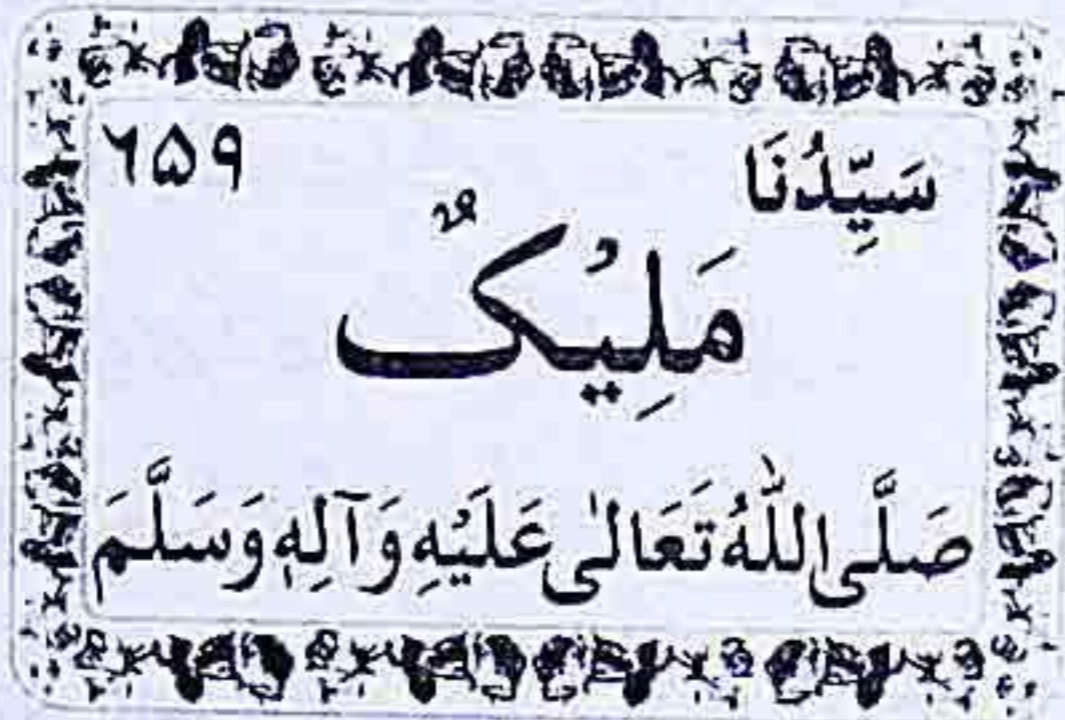 سَيِّدُنَا ۶۵۹
مَلِيْكٌ
صَلَّى اللّٰهُ تَعَالٰى عَلَيْهِ وَآلِهٖ وَسَلَّمَ